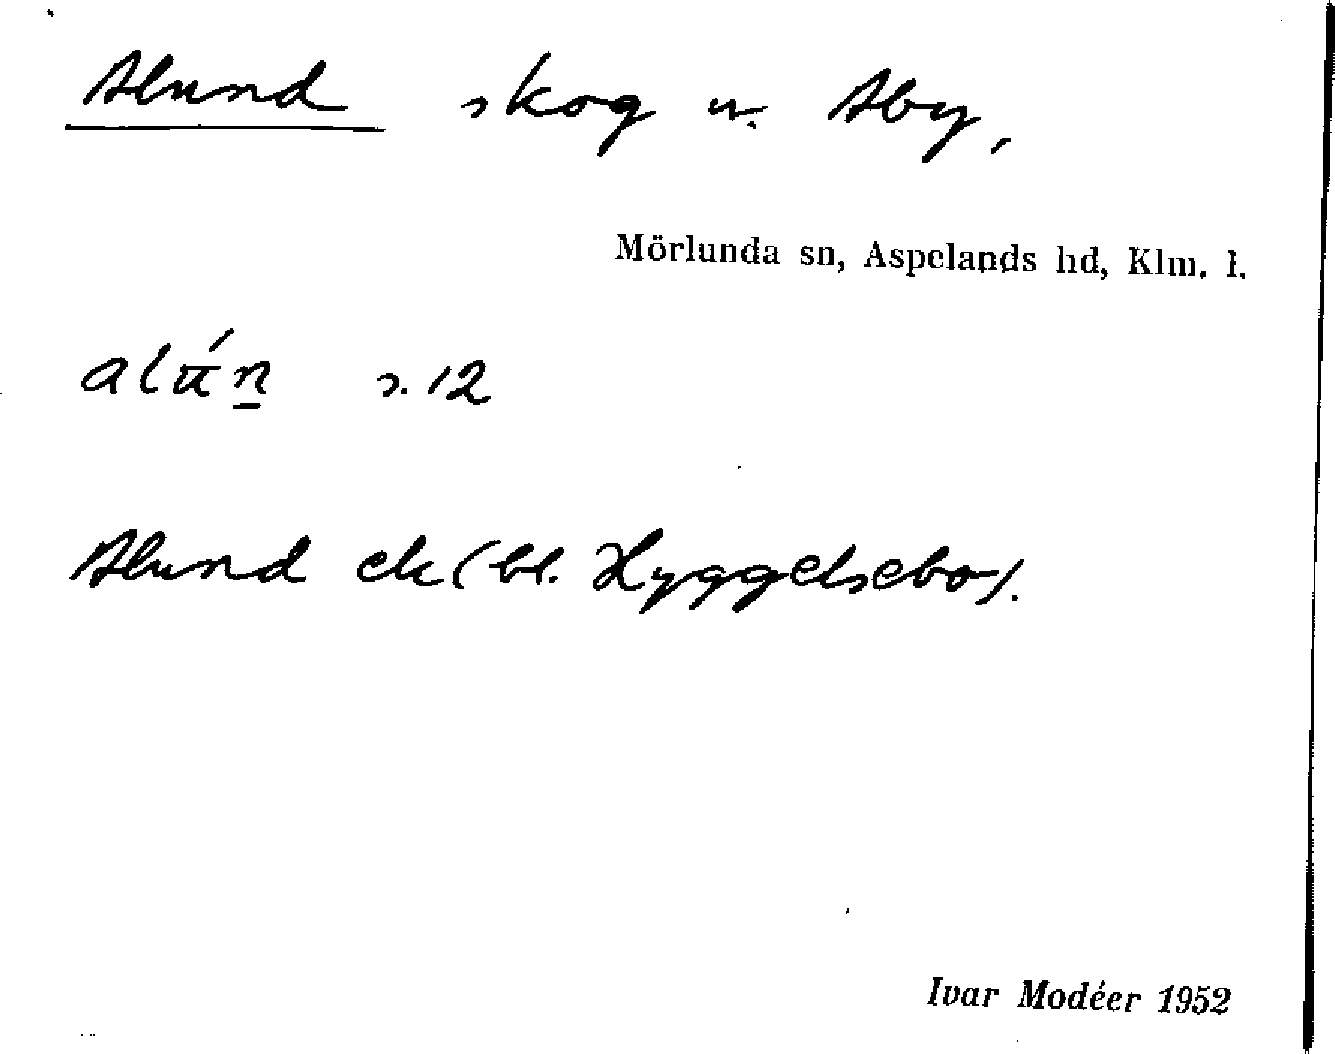 Alund skog u. Åby,
Mörlunda sn, Aspelands hd, Klm. l.
alún s. 12
Alund ek (bl. Hyggelsebo).
Ivar Modéer 1952